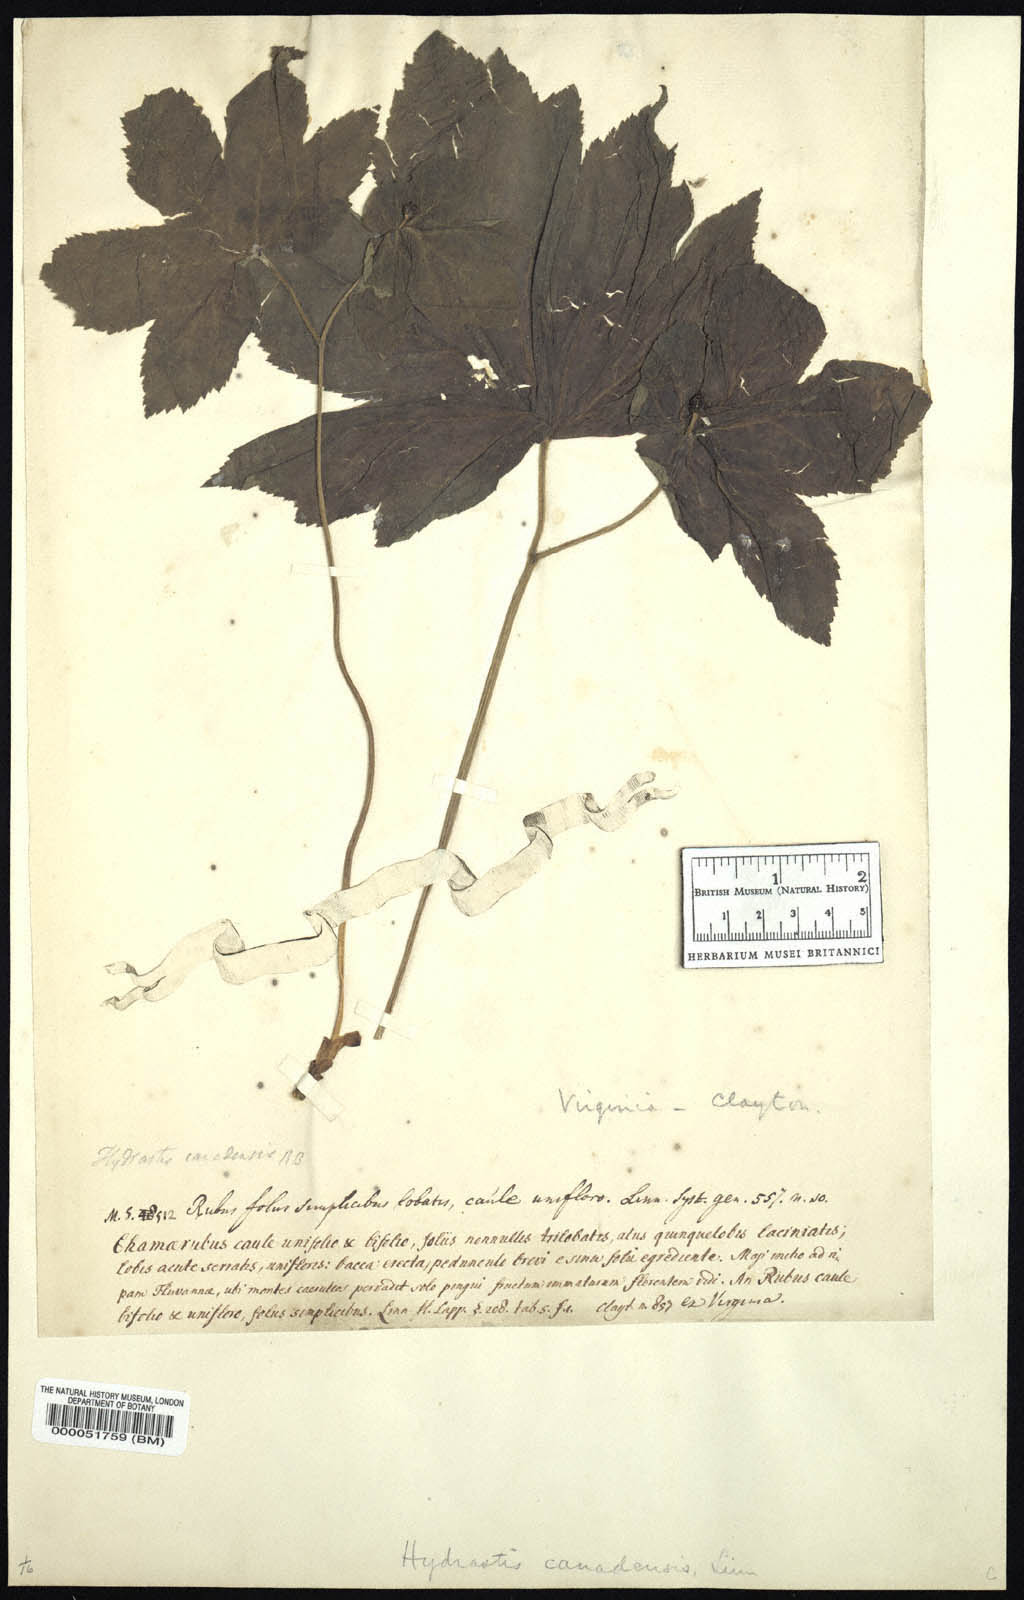 1 2
BRITISH MUSEUM (NATURAL HISTORY)
1 2 3 4 5
HERBARIUM MUSEI BRITANNICI
Virginia - Clayton.
Hydrastis canadensis
Rubus foliis simplicibus lobatis, caule unifloro. Linn. Syst. gen. 557. n. 10.
Chamærubus caule unifolio & bifolio, foliis nonnullis trilobatis, aliis quinquelobis laciniatis;
lobis acute serratis, unifloris: bacca erecta, pedunculo brevi e sinu folii egrediente. Maji initio ad ri
pam Fluvannæ, ubi montes cæruleos pervadit solo pingui fructum immaturum, florentem vidi. An Rubus caule
bifolio & unifloro, foliis simplicibus. Linn. fl. Lapp. §. 208. tab. 5. f. 1. Clayt. n. 857 Ex Virginia.
THE NATURAL HISTORY MUSEUM, LONDON
DEPARTMENT OF BOTANY
000051759 (BM)
Hydrastis canadensis, Linn
C